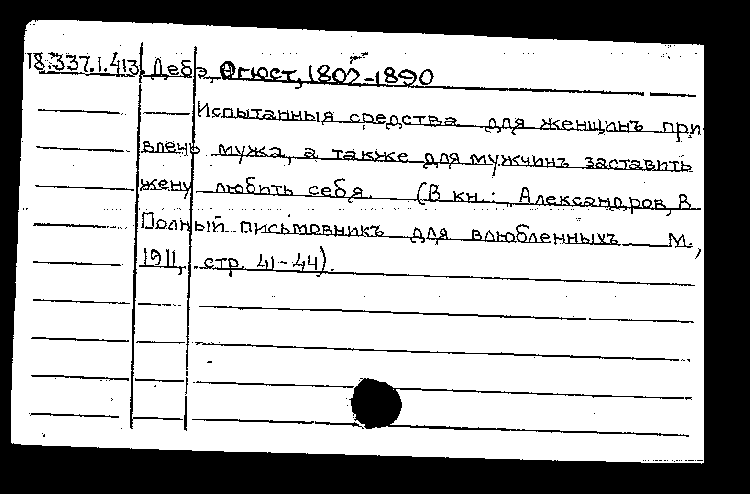 18.337.1.413. Дебэ, Огюст, 1802-1890
Испытанныя средства для женщинъ при
влечь мужа, а также для мужчинъ заставить
жену любить себя. (В кн.: Александров, В.
Полный письмовникъ для влюбленныхъ М.,
1911, стр. 41-44).